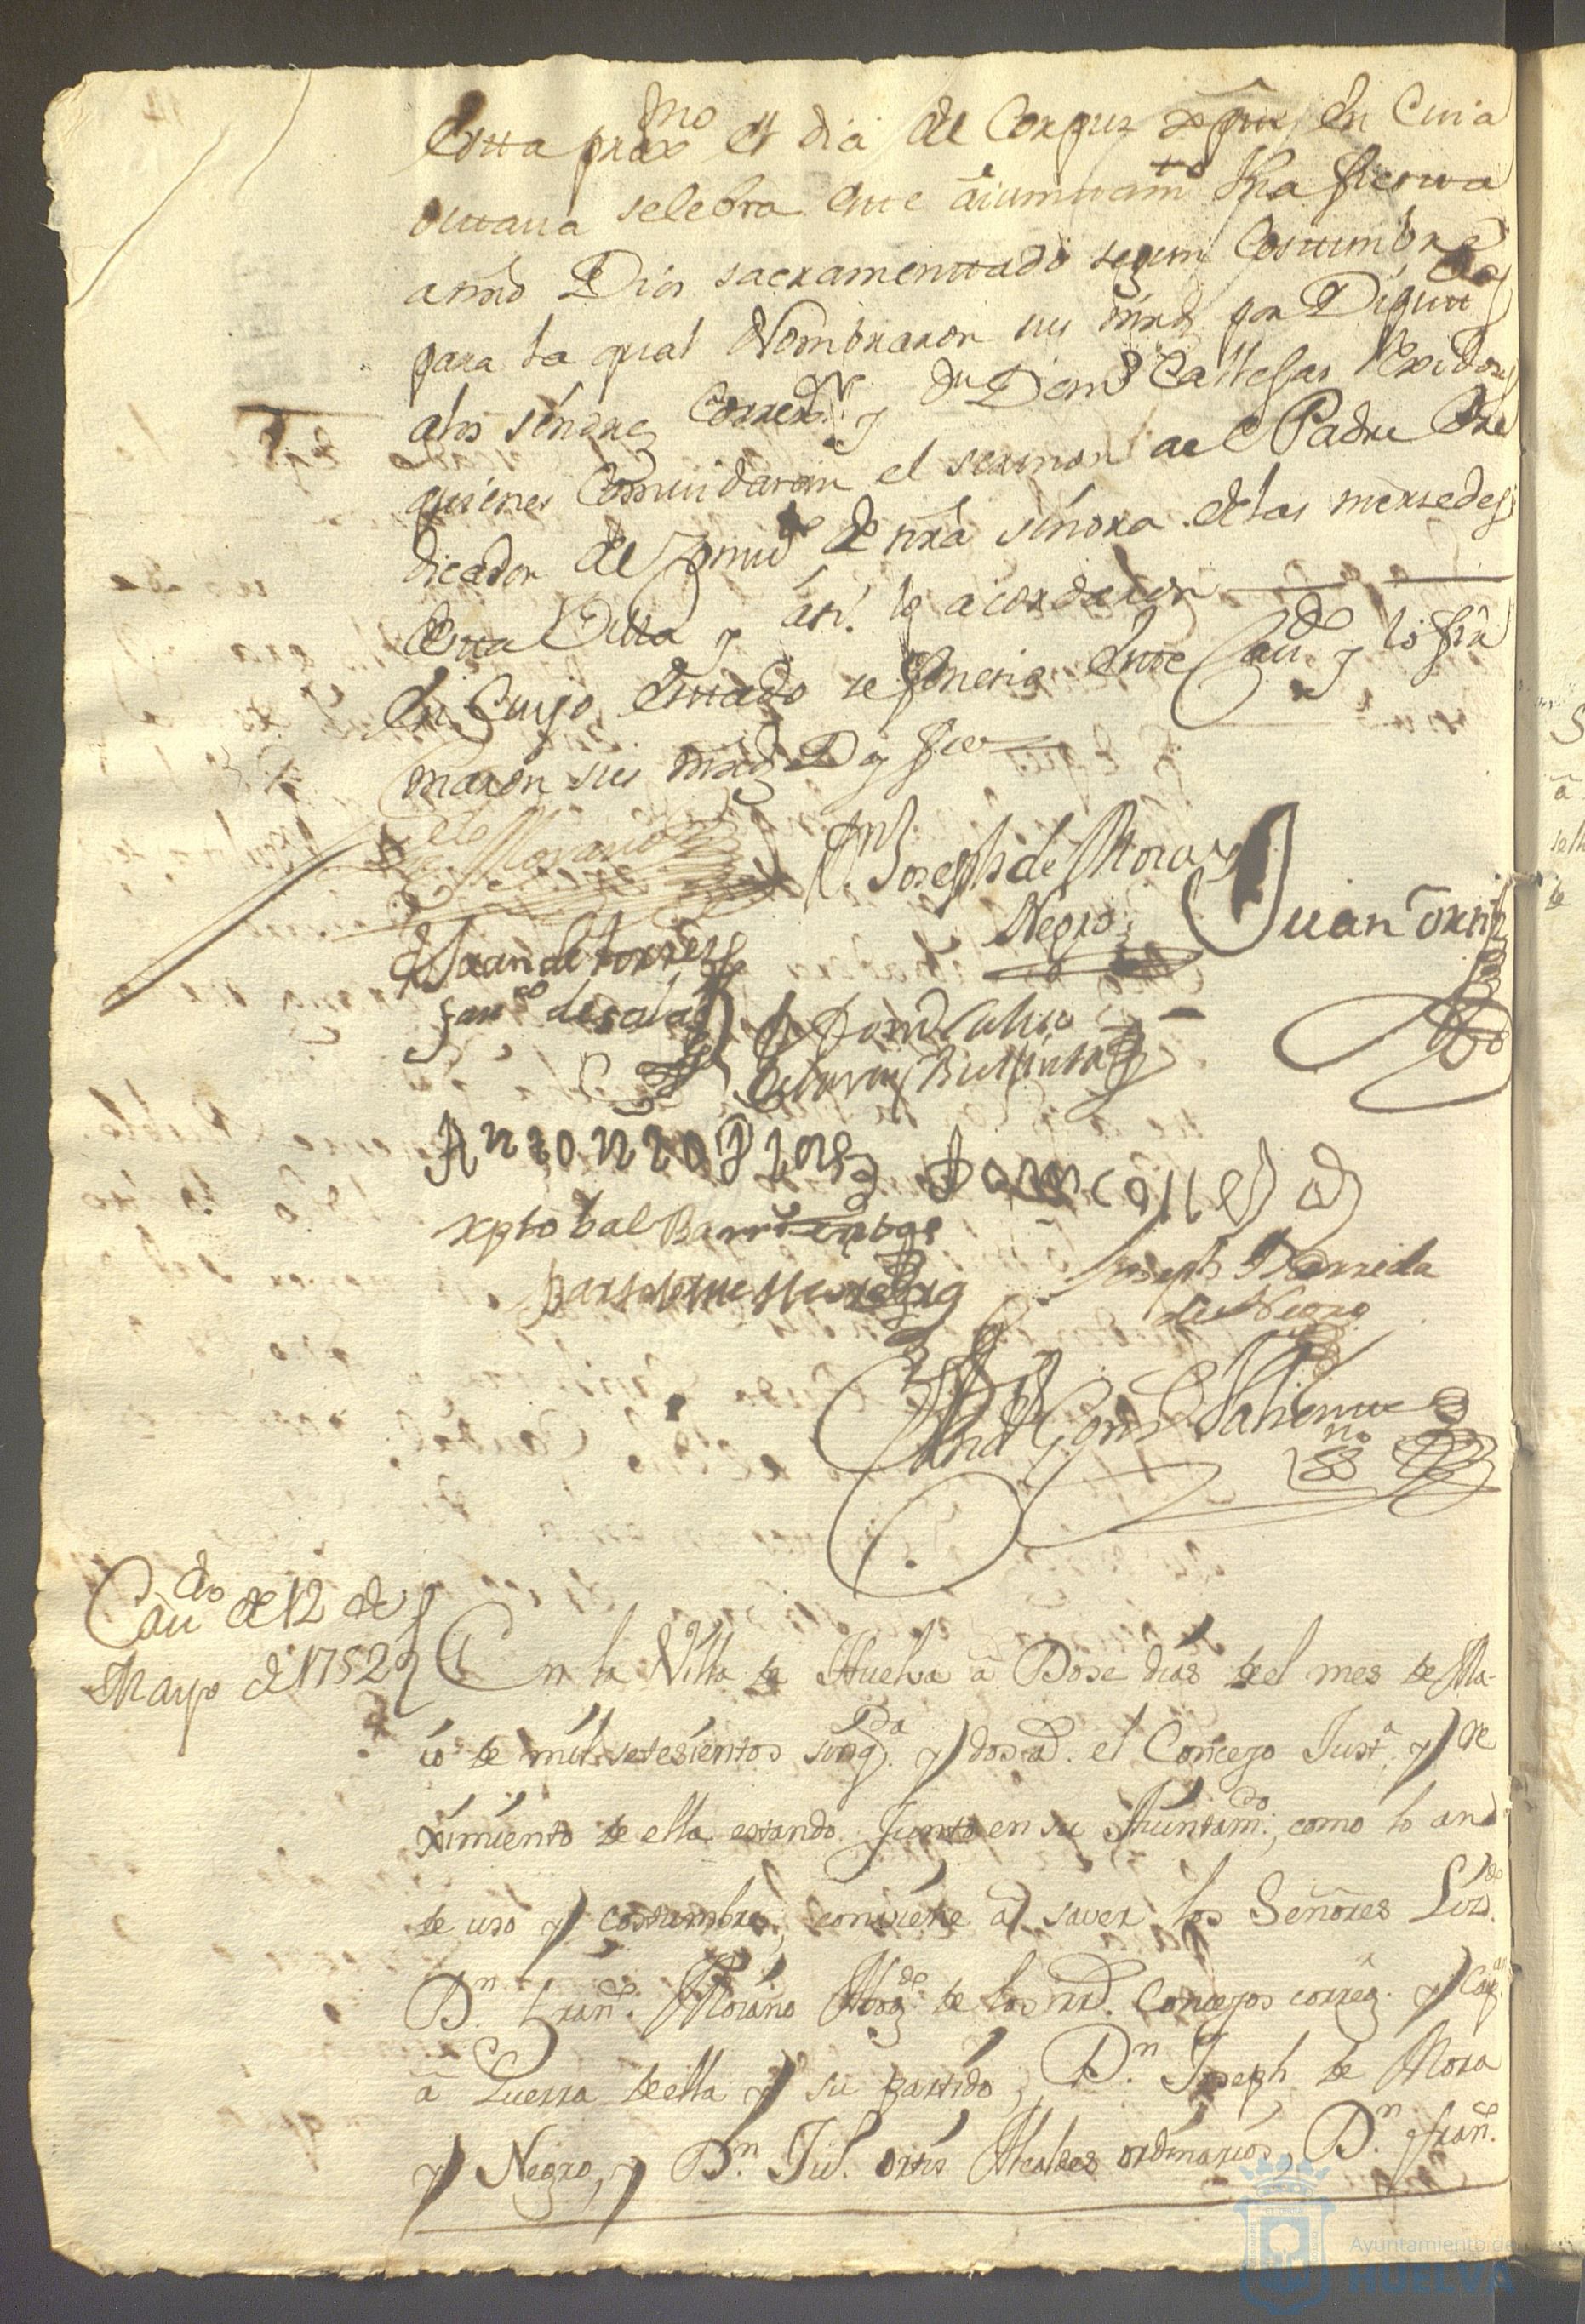 Estta prox.mo el dia de Corpus xpti, en Cuia
octtava selebra este aiunttam.to dha fiestta
a nro Dios sacramenttado segun Costtumbre
para la qual Nombraron sus mrds por Diputt.os
a los señores Correx.or y Dn Dom.o Callejas Rexidor
quienes Comvidaran el sermon de el Padre Pre
dicador de Comv.to de nra señora de las mersedes
Estta Villa y asi lo acordaron
En Cuyo esttado se feneció estte Cav.do y lo fir
maron sus mrds Doy fee
Lc.do Morano
Dn Joseph de Mora y
Negro
Juan ortis
Juan de torres
fran.co de salas
Dom.o Calixto
Anzonzo Perez
Dom Callejas
xptobal Barrientos
Bartolome
Joseph Barreda
de Negro
And.s Gonz.
no
Cav.do de 12 de
Mayo de 1752
En la Villa de Huelva â Dose dias de el mes de Ma-
io de mil setesientos sinq.ta y dos a.s el Concejo Just.a y Re
ximiento de ella estando Junto en su Aiuntam.to, como lo an
de uso y costumbre, conviene â saver los Señores Liz.do
D.n Fran.co Morano Abog.do de los rr.s Concejos correg.r y Cap.n
â Guerra de ella y su partido, D.n Joseph de Mora
y Negro, y D.n Ju.o ortis Alcaldes ordinarios, D.n fran.co
Ayuntamiento de
HUELVA